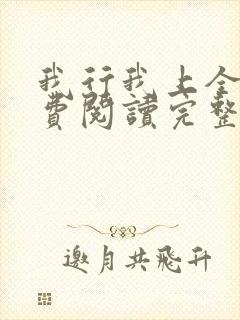 我行我上全
費閱讀完整
邀月共飛升